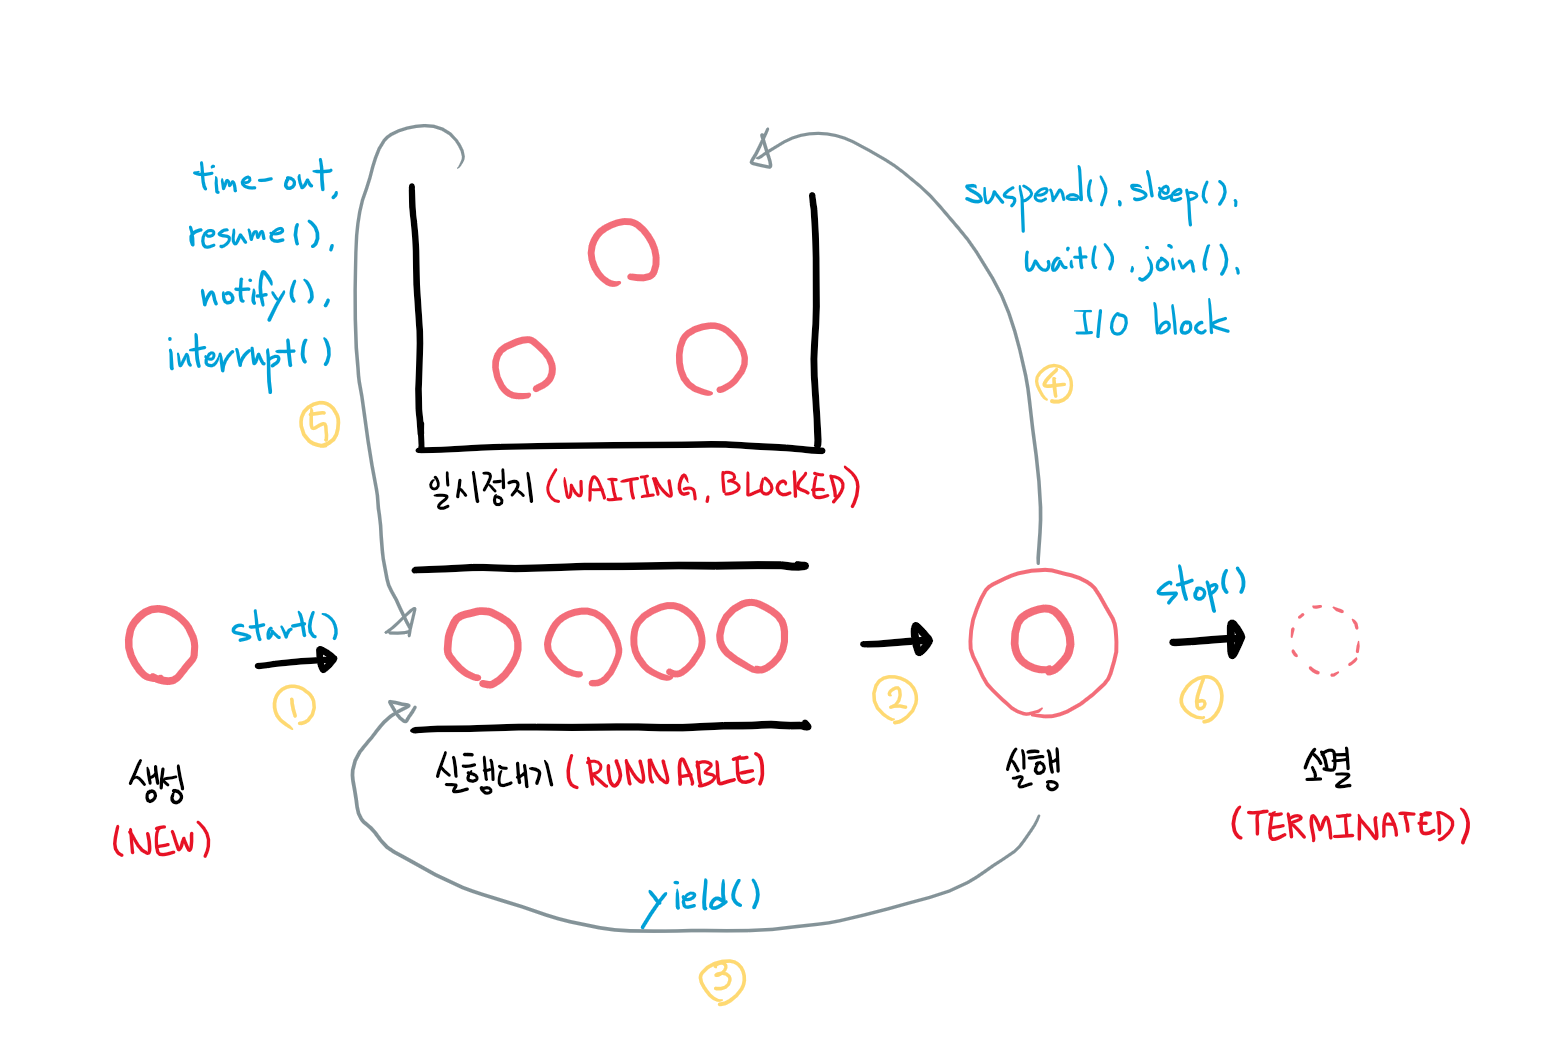 time-out,
resume(),
notify(),
interrupt()
⑤
suspend(), sleep(),
wait(), join(),
I/O block
④
일시정지 (WAITING, BLOCKED)
start()
①
②
stop()
⑥
생성
(NEW)
실행대기 (RUNNABLE)
실행
소멸
(TERMINATED)
yield()
③